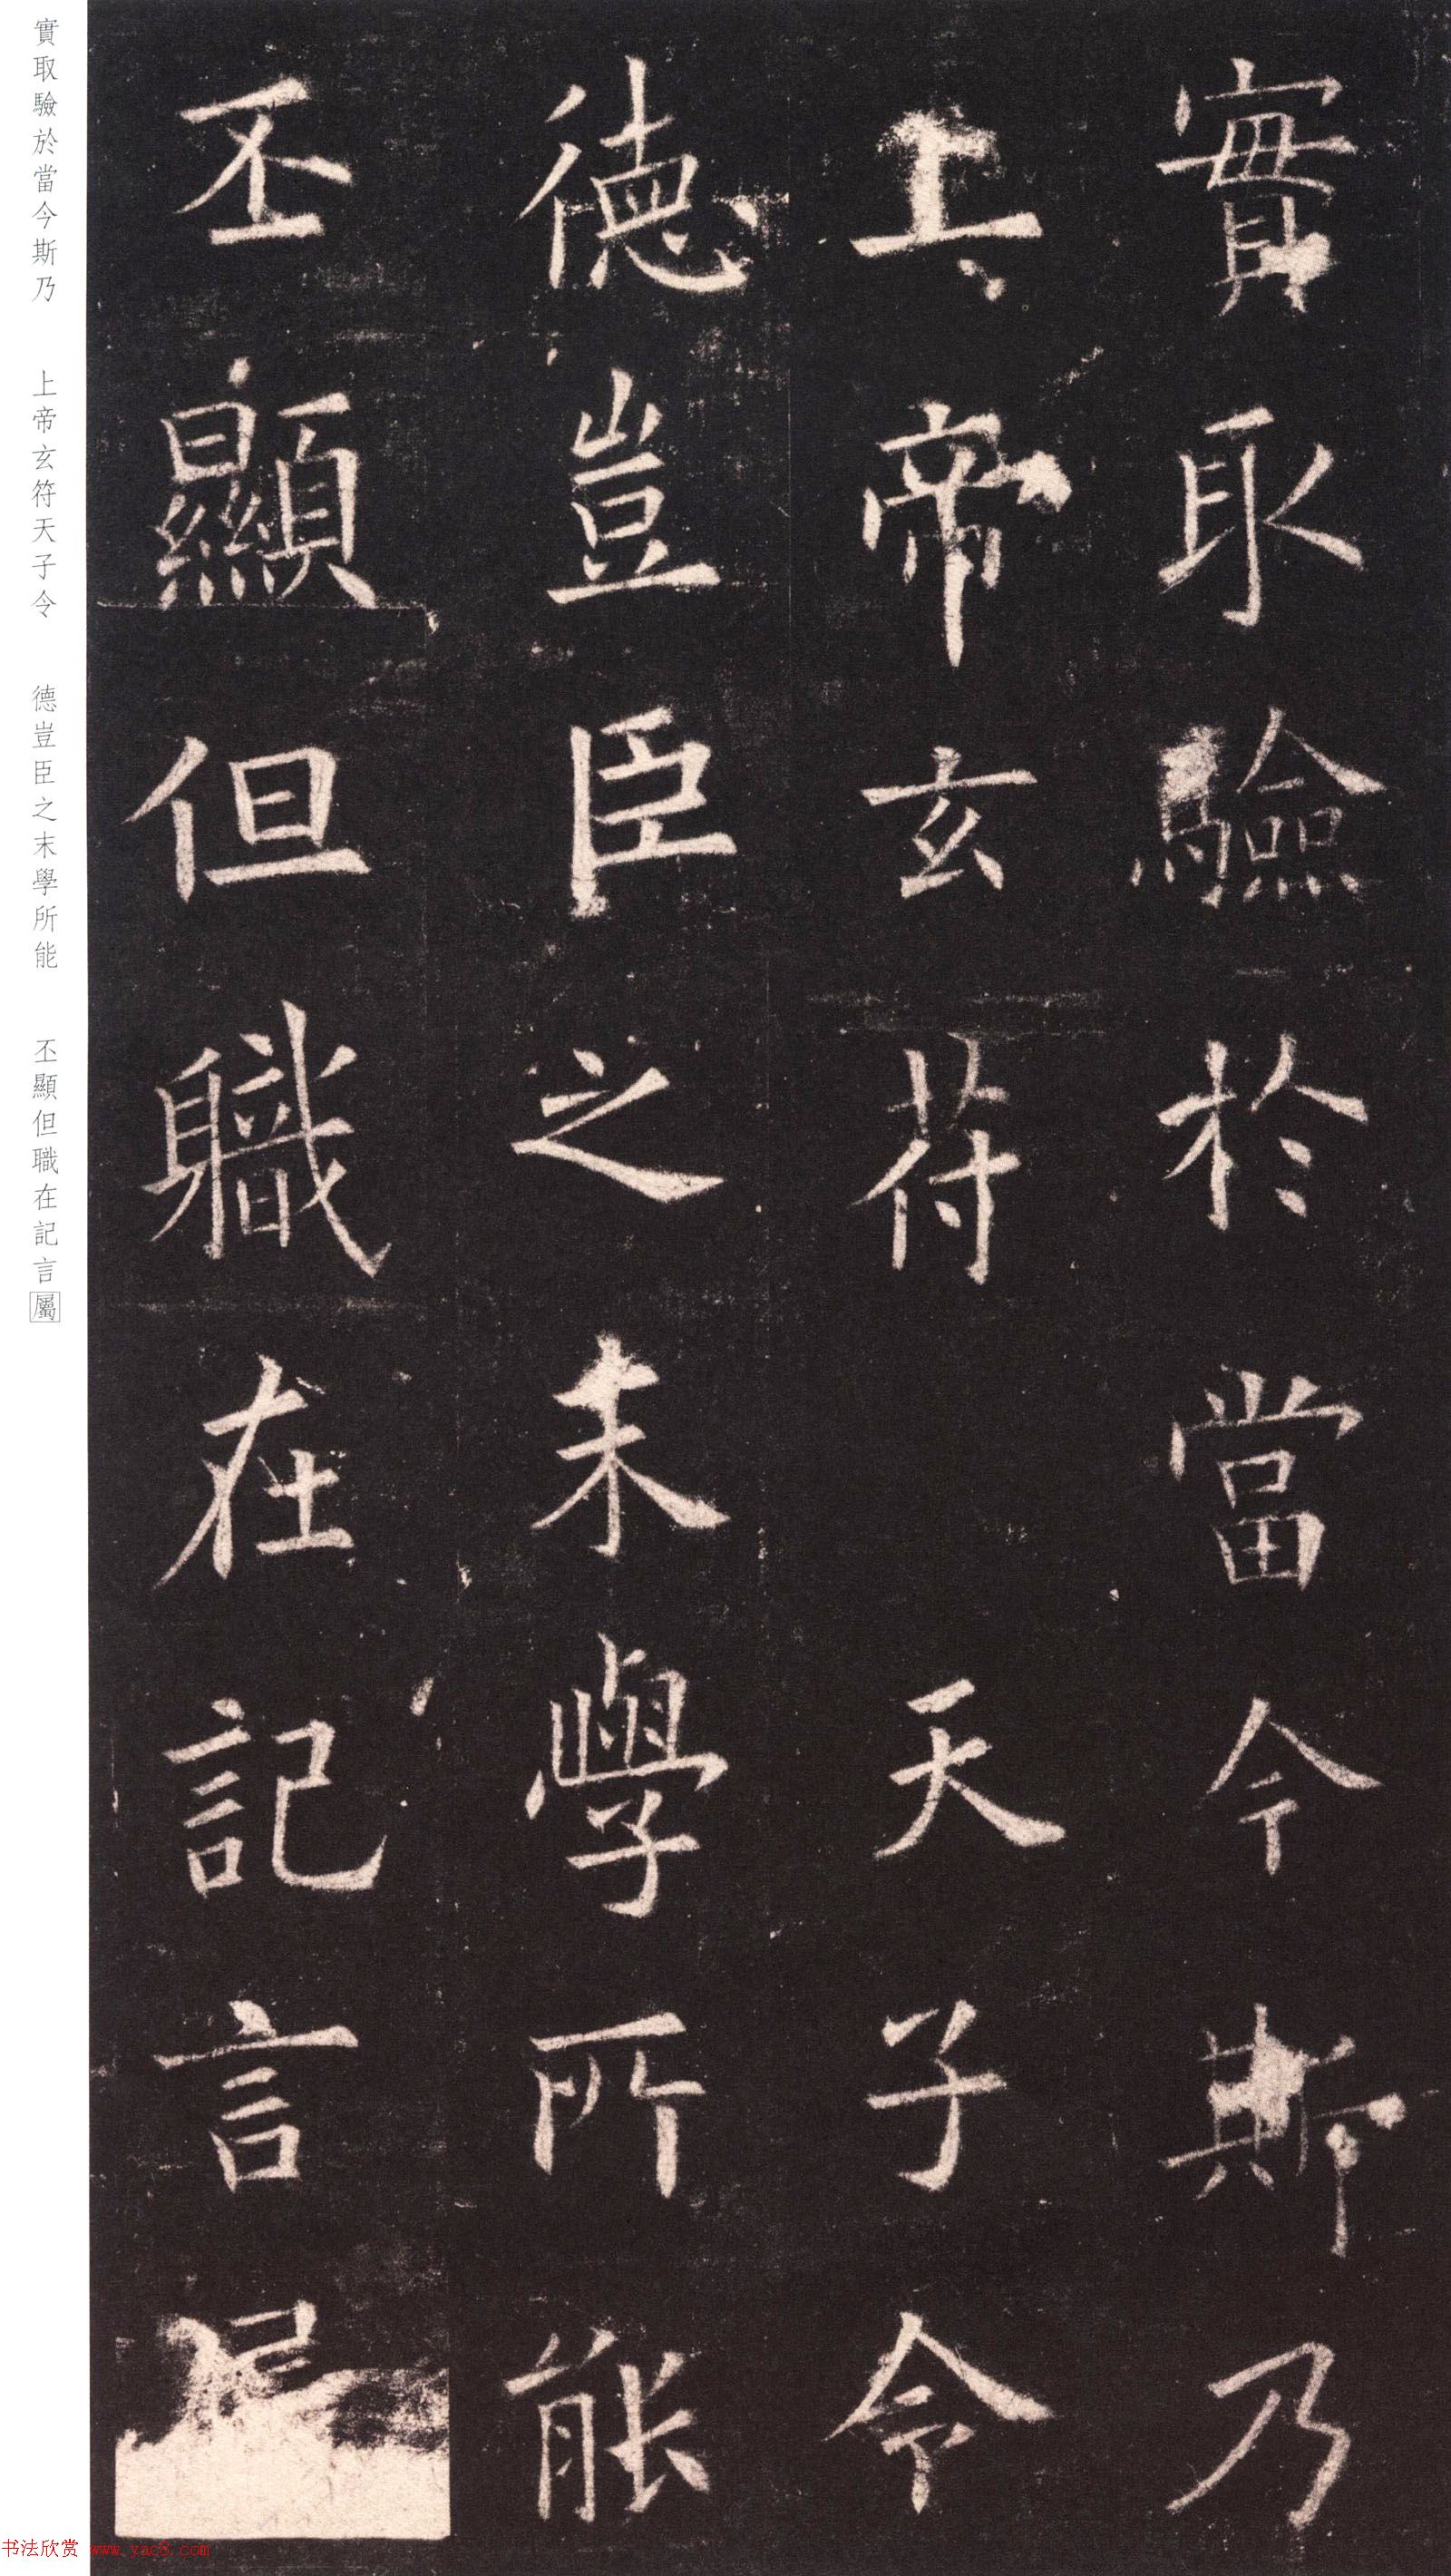 實取驗於當今斯乃
上帝玄符天子令
德豈臣之末學所能
丕顯但職在記言
實取驗於當今斯乃 上帝玄符天子令 德豈臣之末學所能 丕顯但職在記言屬
书法欣赏 www.yac8.com